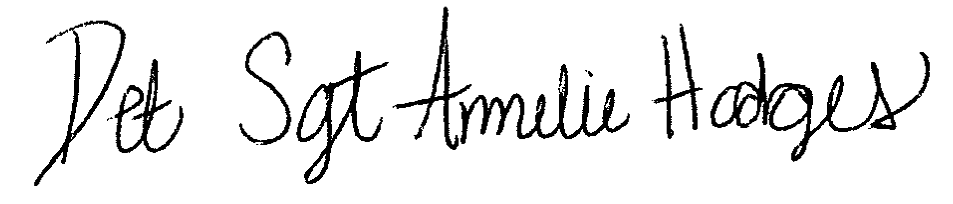 Det Sgt Annelie Hodges